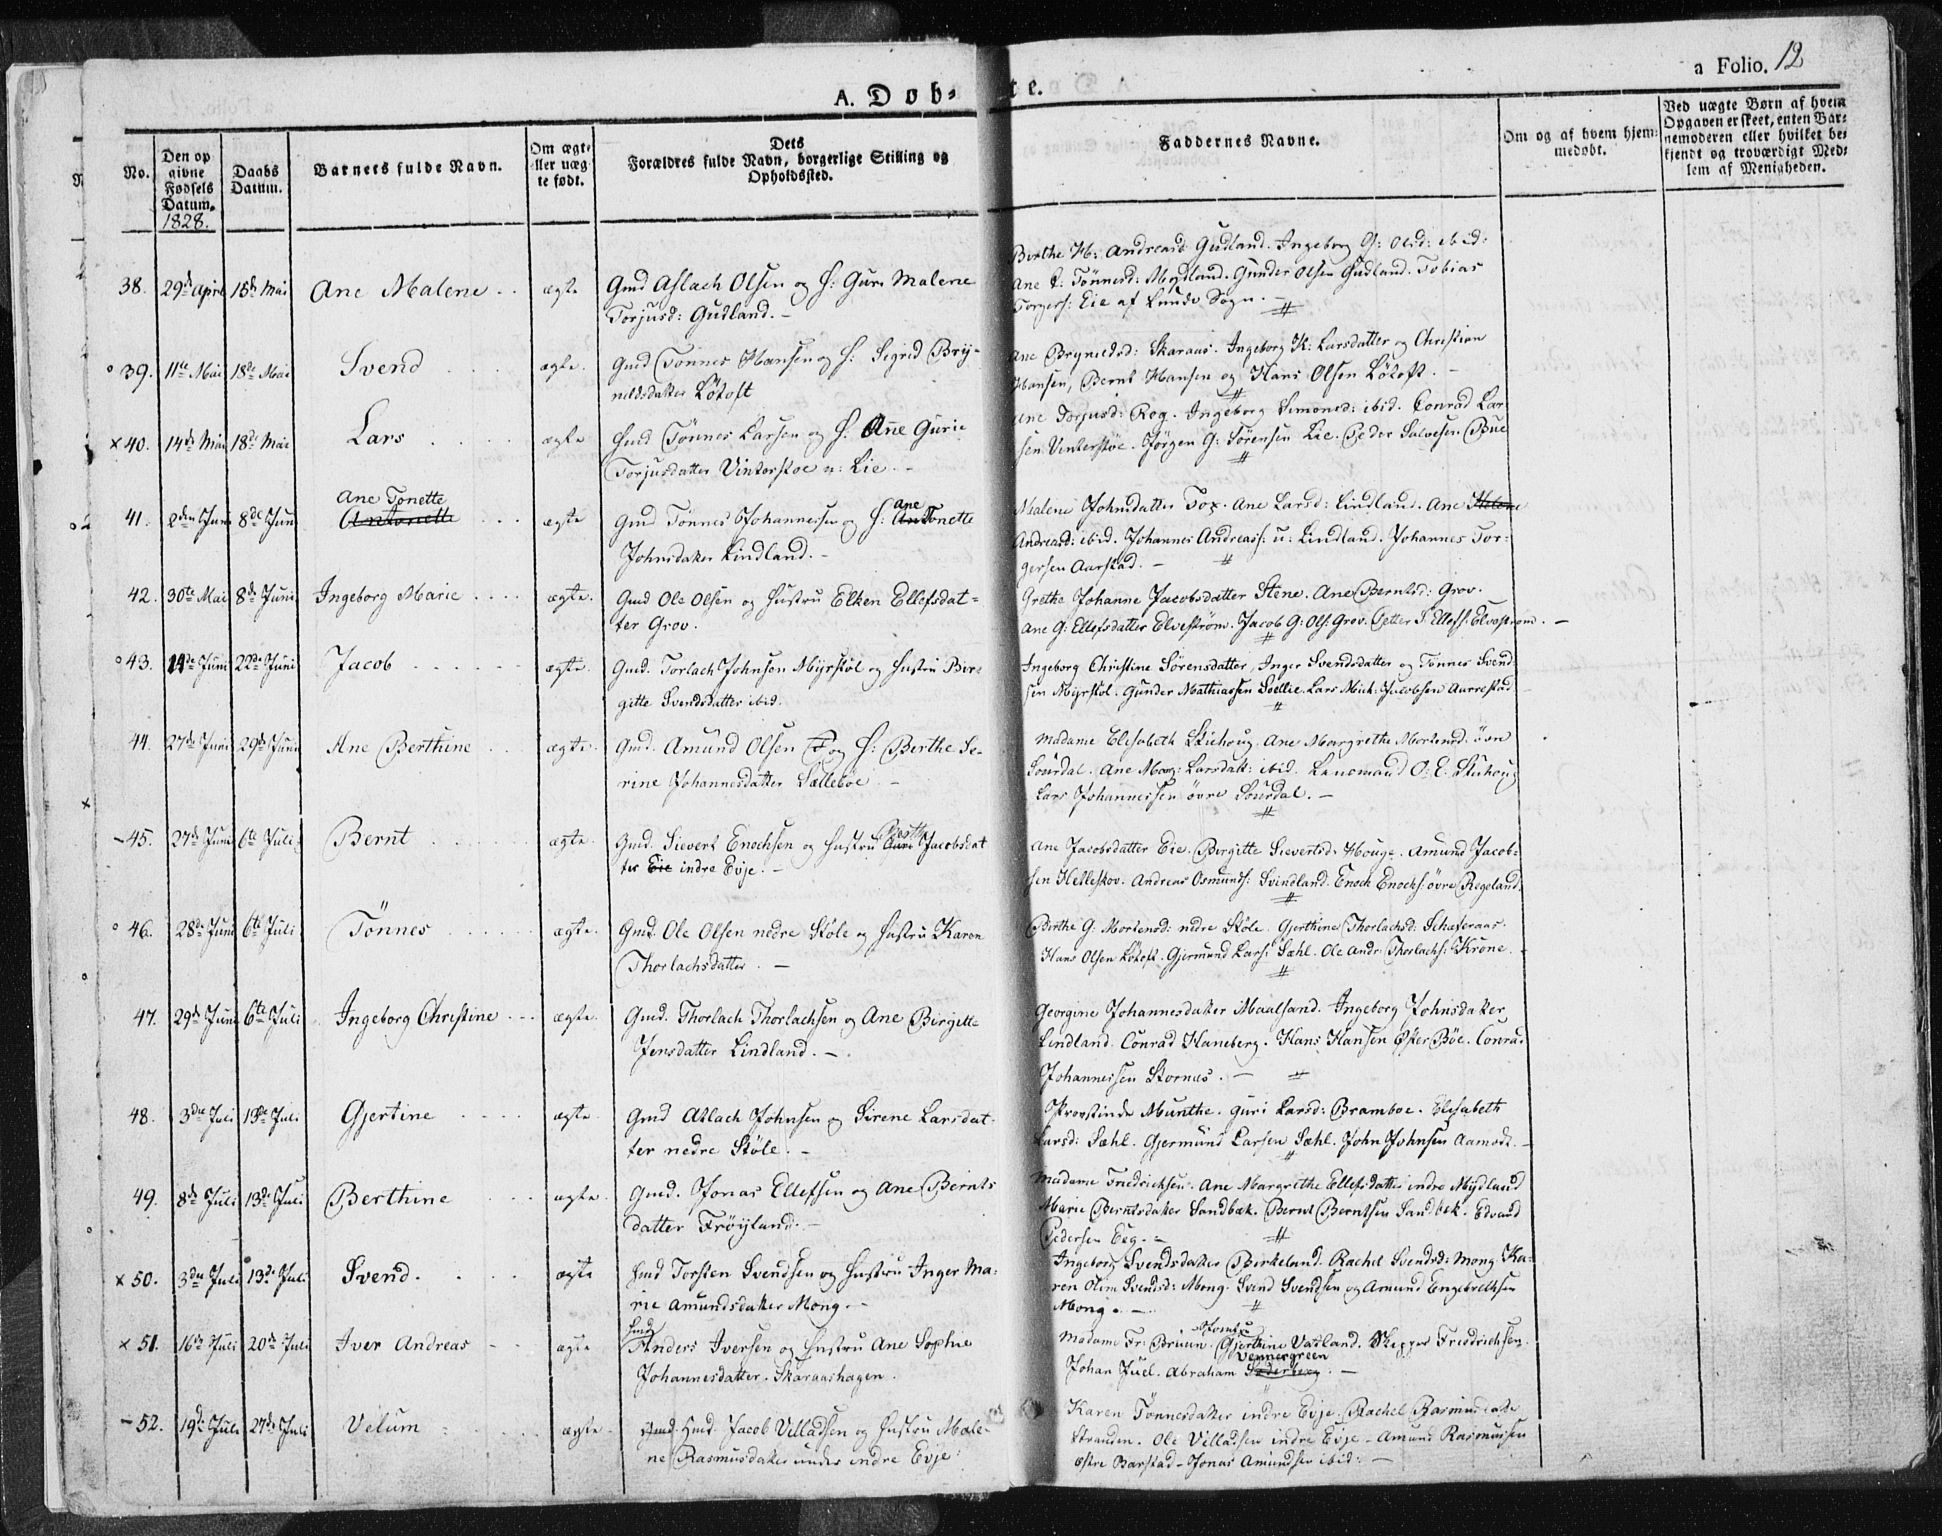 A. Dob= te.
a Folio. 12
No.
Den op
givne
Fødsels
Datum.
1828.
Daabs
Datum.
Barnets fulde Navn.
Om ægte
eller uæg
te født.
Dets
Forældres fulde Navn, borgerlige Stilling og
Opholdssted.
Faddernes Navne.
Om og af hvem hjem=
medøbt.
Ved uægte Børn af hvem
Opgaven er skeet, enten Bar=
nemoderen eller hvilket be=
kjendt og troværdigt Med=
lem af Menigheden.
38. 29de April 15de Mai Ane Malene ægte Gmd Aslach Olsen og H: Guri Malene
Torjusd: Gudland. -
Berthe H: Andreasd Gudland. Ingeborg G: Olsd: ibid:
Ane C: Tønnesd: Mydland. Gunder Olsen Gudland. Tobias
Torgers: Eie af Lunde Sogn. -
39. 11te Mai 18de Mai Svend ægte. Gmd Tønnes Hansen og H: Sigrid Bryn=
nildsdatter Løtoft
Ane Brynildsd: Skaraas. Ingeborg K: Larsdatter og Christian
Hansen, Bernt Hansen og Hans Olsen Løtoft. -
× 40. 14de Mai 18de Mai Lars ægte Hmd Tønnes Larsen og H: Ane Gurie
Torjusdatter Vinterstøe u: Lie. -
Ane Torjusd: Reg. Ingeborg Simonsd: ibid. Conrad Lar=
sen Vinterstøe. Jørgen G: Sørensen Lie. Peder Salvesen Bue
41. 2den Juni 8de Juni Ane Tonette
Antonette ægte Gmd Tønnes Johannessen og H: Ane Tonette
Johnsdatter Lindland. -
Malene Johnsdatter Tox. Ane Larsd: Lindland. Ane Helene
Andreasd: ibid. Johannes Andreass: u: Lindland. Johannes Tor=
gersen Aarstad. -
42. 30te Mai 8de Juni Ingeborg Marie ægte. Gmd Ole Olsen og Hustru Elken Ellefsdat=
ter Grov.
Grethe Johanne Jacobsdatter Stene. Ane Berntsd: Grov.
Ane G: Ellefsdatter Elvestrøm. Jacob G: Ols: Grov. Petter S: Ellefs: Elvestrøm. -
43. 14de Juni 22de Juni Jacob ægte. Gmd. Torlach Johnsen Myrstøl og Hustru Bir=
gitte Svendsdatter ibid.
Ingeborg Christine Sørensdatter, Inger Svendsdatter og Tønnes Svend
sen Myrstøl. Gunder Mathiassen Soellie. Lars Mich: Jacobsen Aarrestad
44. 27de Juni 29de Juni Ane Berthine ægte. Gmd. Amund Olsen og H: Berthe Se=
rine Johannesdatter Sællebøe -
Madame Elisabeth Skuhoug. Ane Margrethe Mortensd. øvre
Sourdal. Ane Marg: Larsdatt: ibid. Lensmand O: E. Skuhoug
Lars Johannessen øvre Sourdal. -
45. 27de Juni 6te Juli Bernt ægte. Gmd. Sievert Enochsen og Hustru Berthe Jacobsdat
ter Eie indre Evje. -
Ane Jacobsdatter Eie. Birgitte Sievertsd: Houge. Amund Jacob=
sen Helleskov. Andreas Osmunds: Svindland. Enoch Enochs: øvre Regeland.
46. 28de Juni 6te Juli Tønnes ægte. Gmd. Ole Olsen nedre Støle og Hustru Karen
Thorlachsdatter. -
Birthe G: Mortensd: nedre Støle. Gjerthine Thorlachsd: Schaferaas.
Hans Olsen Løtoft. Gjermund Lars: Sæhl. Ole Andr: Thorlachs: Krone.
47. 29de Juni 6te Juli Ingeborg Christine ægte. Gmd. Thorlach Thorlachsen og Ane Birgitte
Jensdatter Lindland. -
Georgine Johannesdatter Maalsand. Ingeborg Johnsdatter
Lindland. Conrad Haneberg. Hans Hansen Øster Bøe. Conrad
Johannessen Stornæs. -
48. 3die Juli 13de Juli Gjertine ægte. Gmd Aslach Johnsen og Sirene Larsdat
ter nedre Støle. -
Provstinde Munthe. Guri Larsd: Bramboe. Elisabeth
Larsd: Sæhl. Gjermund Larsen Sæhl. John Johnsen Aamodt. -
49. 8de Juli 13de Juli Berthine ægte. Gmd. Jonas Ellefsen og Ane Bernts
datter Frøyland. -
Madame Friedrichsen. Ane Margrethe Ellefsdatter indre Mydland
Marie Berntsdatter Sandbæk. Bernt Berntsen Sandbek. Edvard
Pedersen Eeg. -
× 50. 3die Juli 13de Juli Svend. ægte Hmd Torsten Svendsen og Hustru Inger Ma=
rie Amundsdatter Mong. -
Ingeborg Svendsdatter Birkeland. Rachel Svendsd: Mong. Ka=
ren Olim Svendsd: Mong. Svend Svendsen og Amund Engebrethsen
Mong. -
× 51. 16de Juli 20de Juli Iver Andreas ægte Hmd
Anders Iversen og Hustru Ane Sophie
Johannesdatter. Skaraashagen.
Madame Fr: Bruun. Jomfru Gjerthine Vatland. Skipper Friedrichsen.
Johan Juel. Abraham Vennergreen
Søderberg. -
- 52. 19de Juli 27de Juli Velum ægte. Gmd Hmd. Jacob Villadsen og Hustru Male=
ne Rasmusdatter under indre Evje.
Karen Tønnesdatter indre Evje. Rachel Rasmusdatter
Stranden. Ole Villadsen indre Evje - Amund Rasmussen
østre Barstad - Jonas Amundsen ibid: -